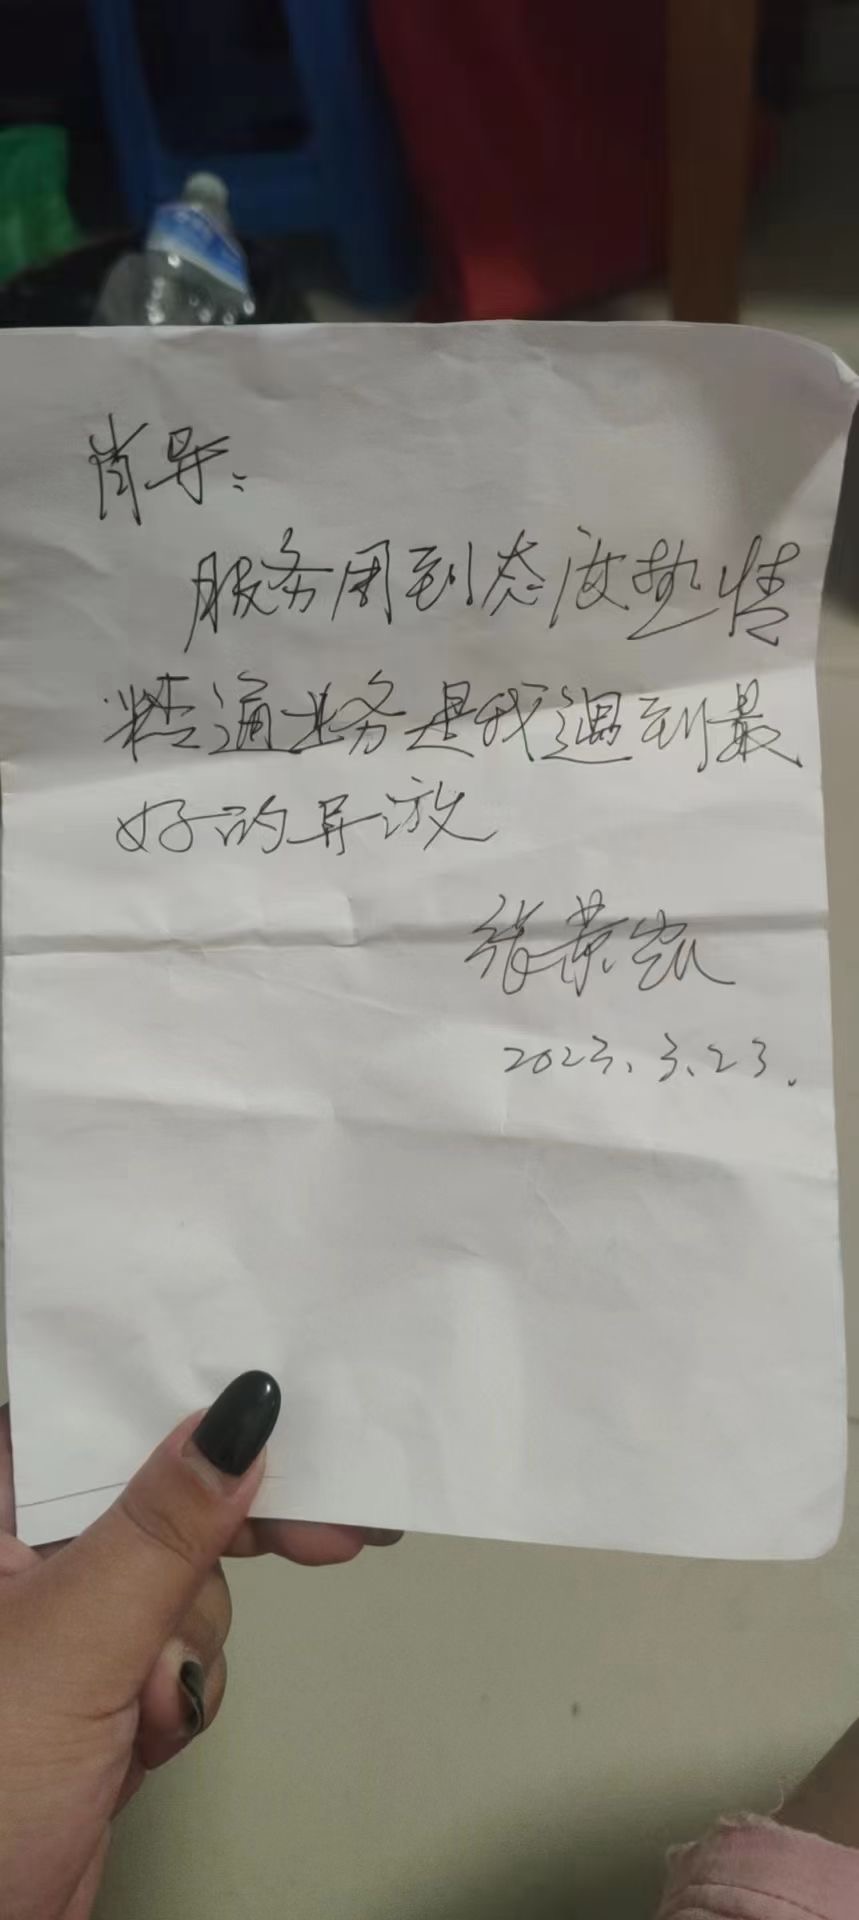 肖导:
服务周到态度热情
精通业务是我遇到最
好的导游
张荣凯
2023.3.23.